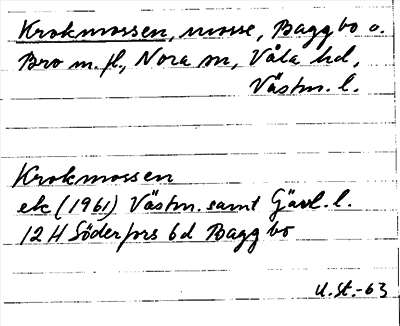 Krokmossen, mosse, Baggbo o.
Bro m.fl., Nora sn, Våla hd,
Västm. l.
Krokmossen
ek (1961) Västm. samt Gävl. l.
12 H Söderfors 6d Baggbo
U.St.-63